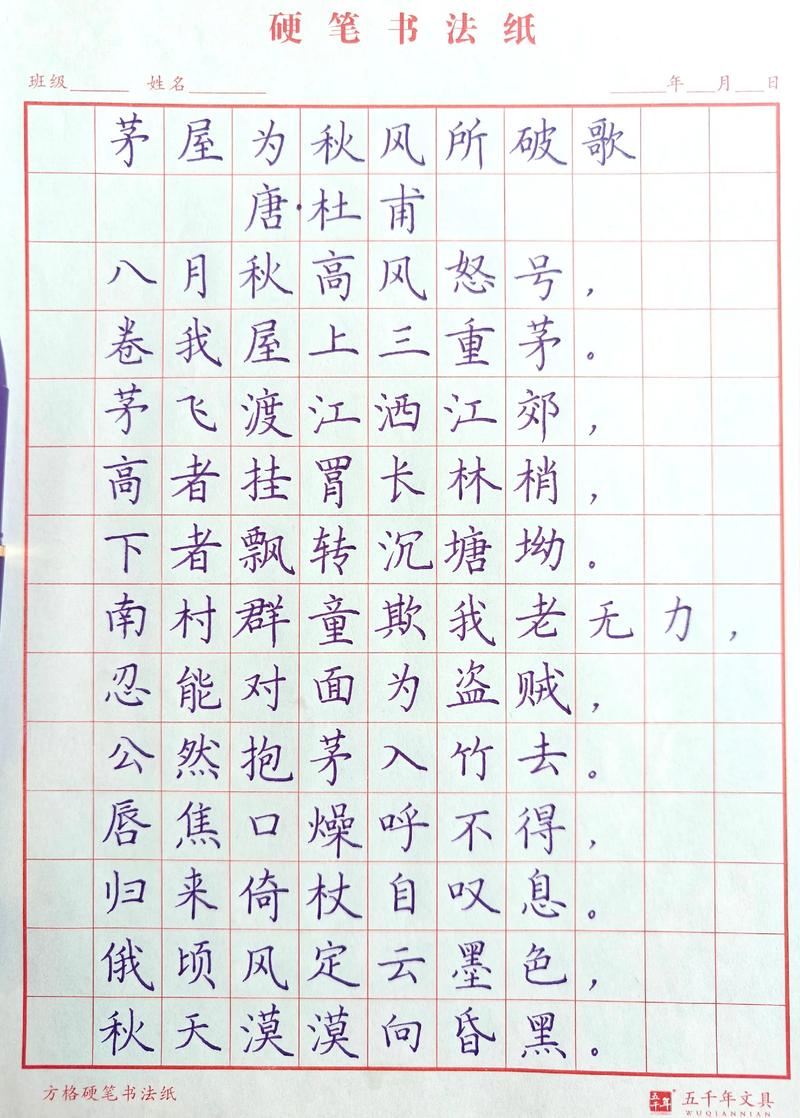 硬笔书法纸
班级______ 姓名________ ______年___月___日
茅屋为秋风所破歌
唐·杜甫
八月秋高风怒号，
卷我屋上三重茅。
茅飞渡江洒江郊，
高者挂罥长林梢，
下者飘转沉塘坳。
南村群童欺我老无力，
忍能对面为盗贼，
公然抱茅入竹去。
唇焦口燥呼不得，
归来倚杖自叹息。
俄顷风定云墨色，
秋天漠漠向昏黑。
方格硬笔书法纸
五千年 五千年文具
WUQIANNIAN